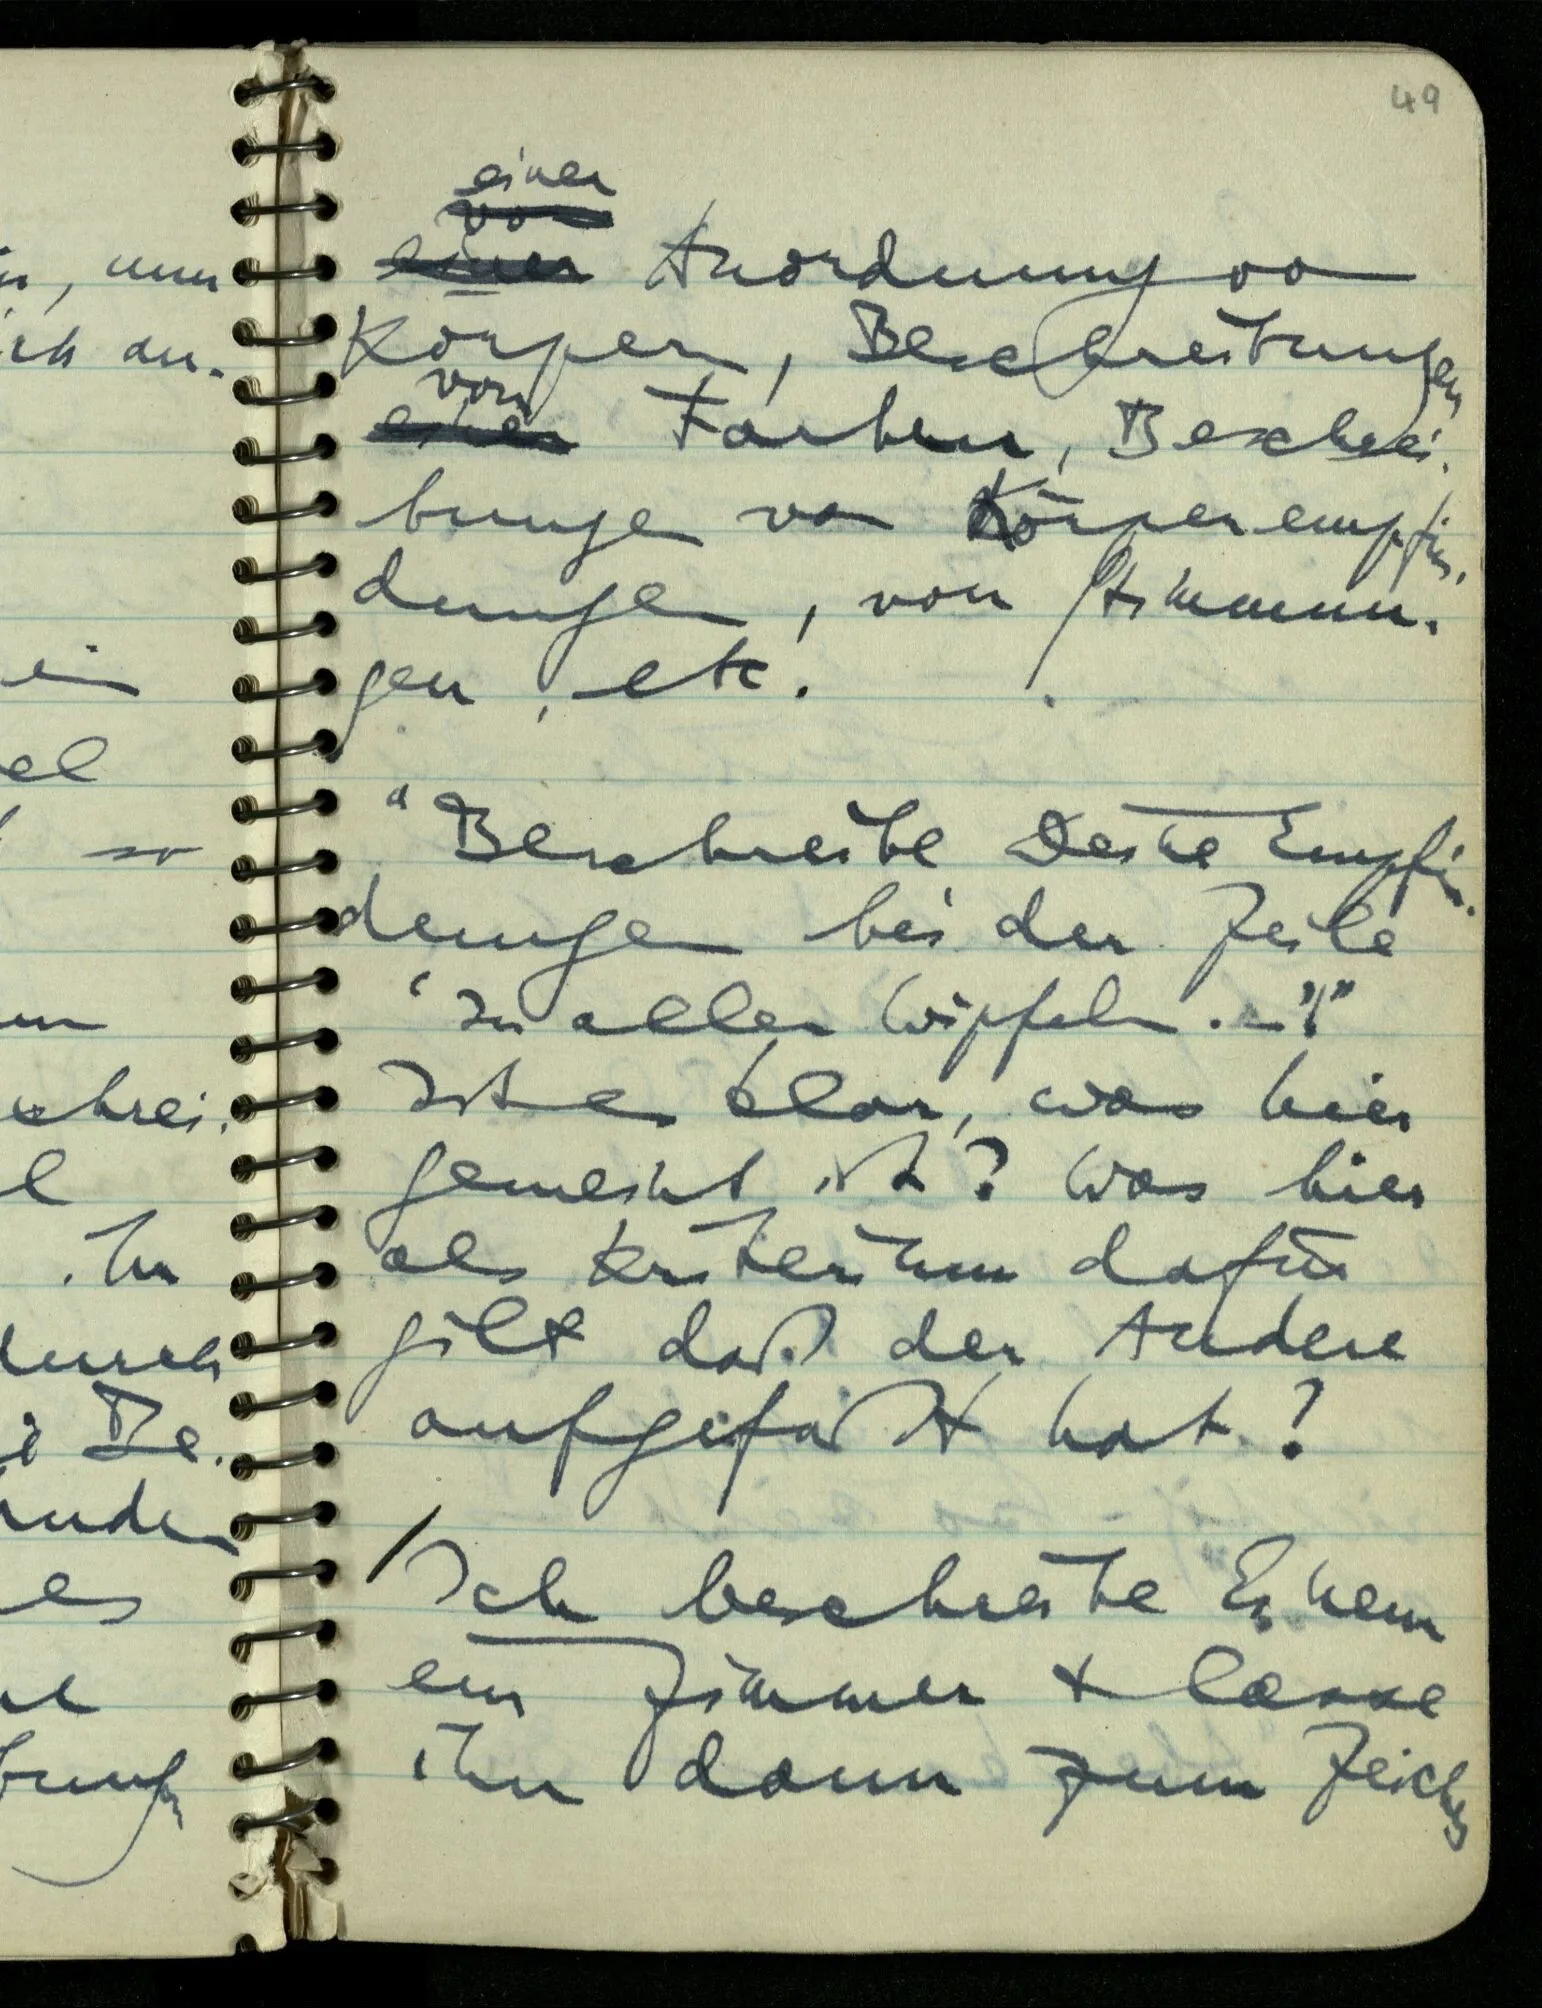 in, nun
ich an-
ein
el
so
schrei-
l
. In
durch
Be-
ander
es
bung
49
einer
von
einer Anordnung von
Körpern, Beschreibungen
von
einer Farben, Beschrei-
bungen von Körperempfin-
dungen, von Stimmun-
gen, etc.
"Beschreibe Deine Empfin-
dungen bei der Zeile
'In allen Wipfeln . –'!"
Ist es klar, was hier
gemeint ist? Was hier
als Kriterium dafür
gilt daß der Andere
aufgefaßt hat?
/ Ich beschreibe Einem
ein Zimmer & lasse
ihn dann zum Zeichen